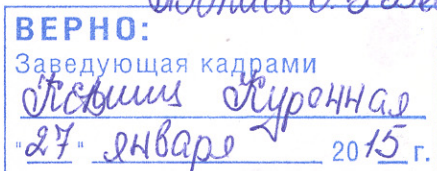 Подпись
ВЕРНО:
Заведующая кадрами
Куренная
"27" января 2015 г.